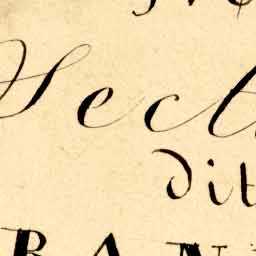 Sect
dit
BAN